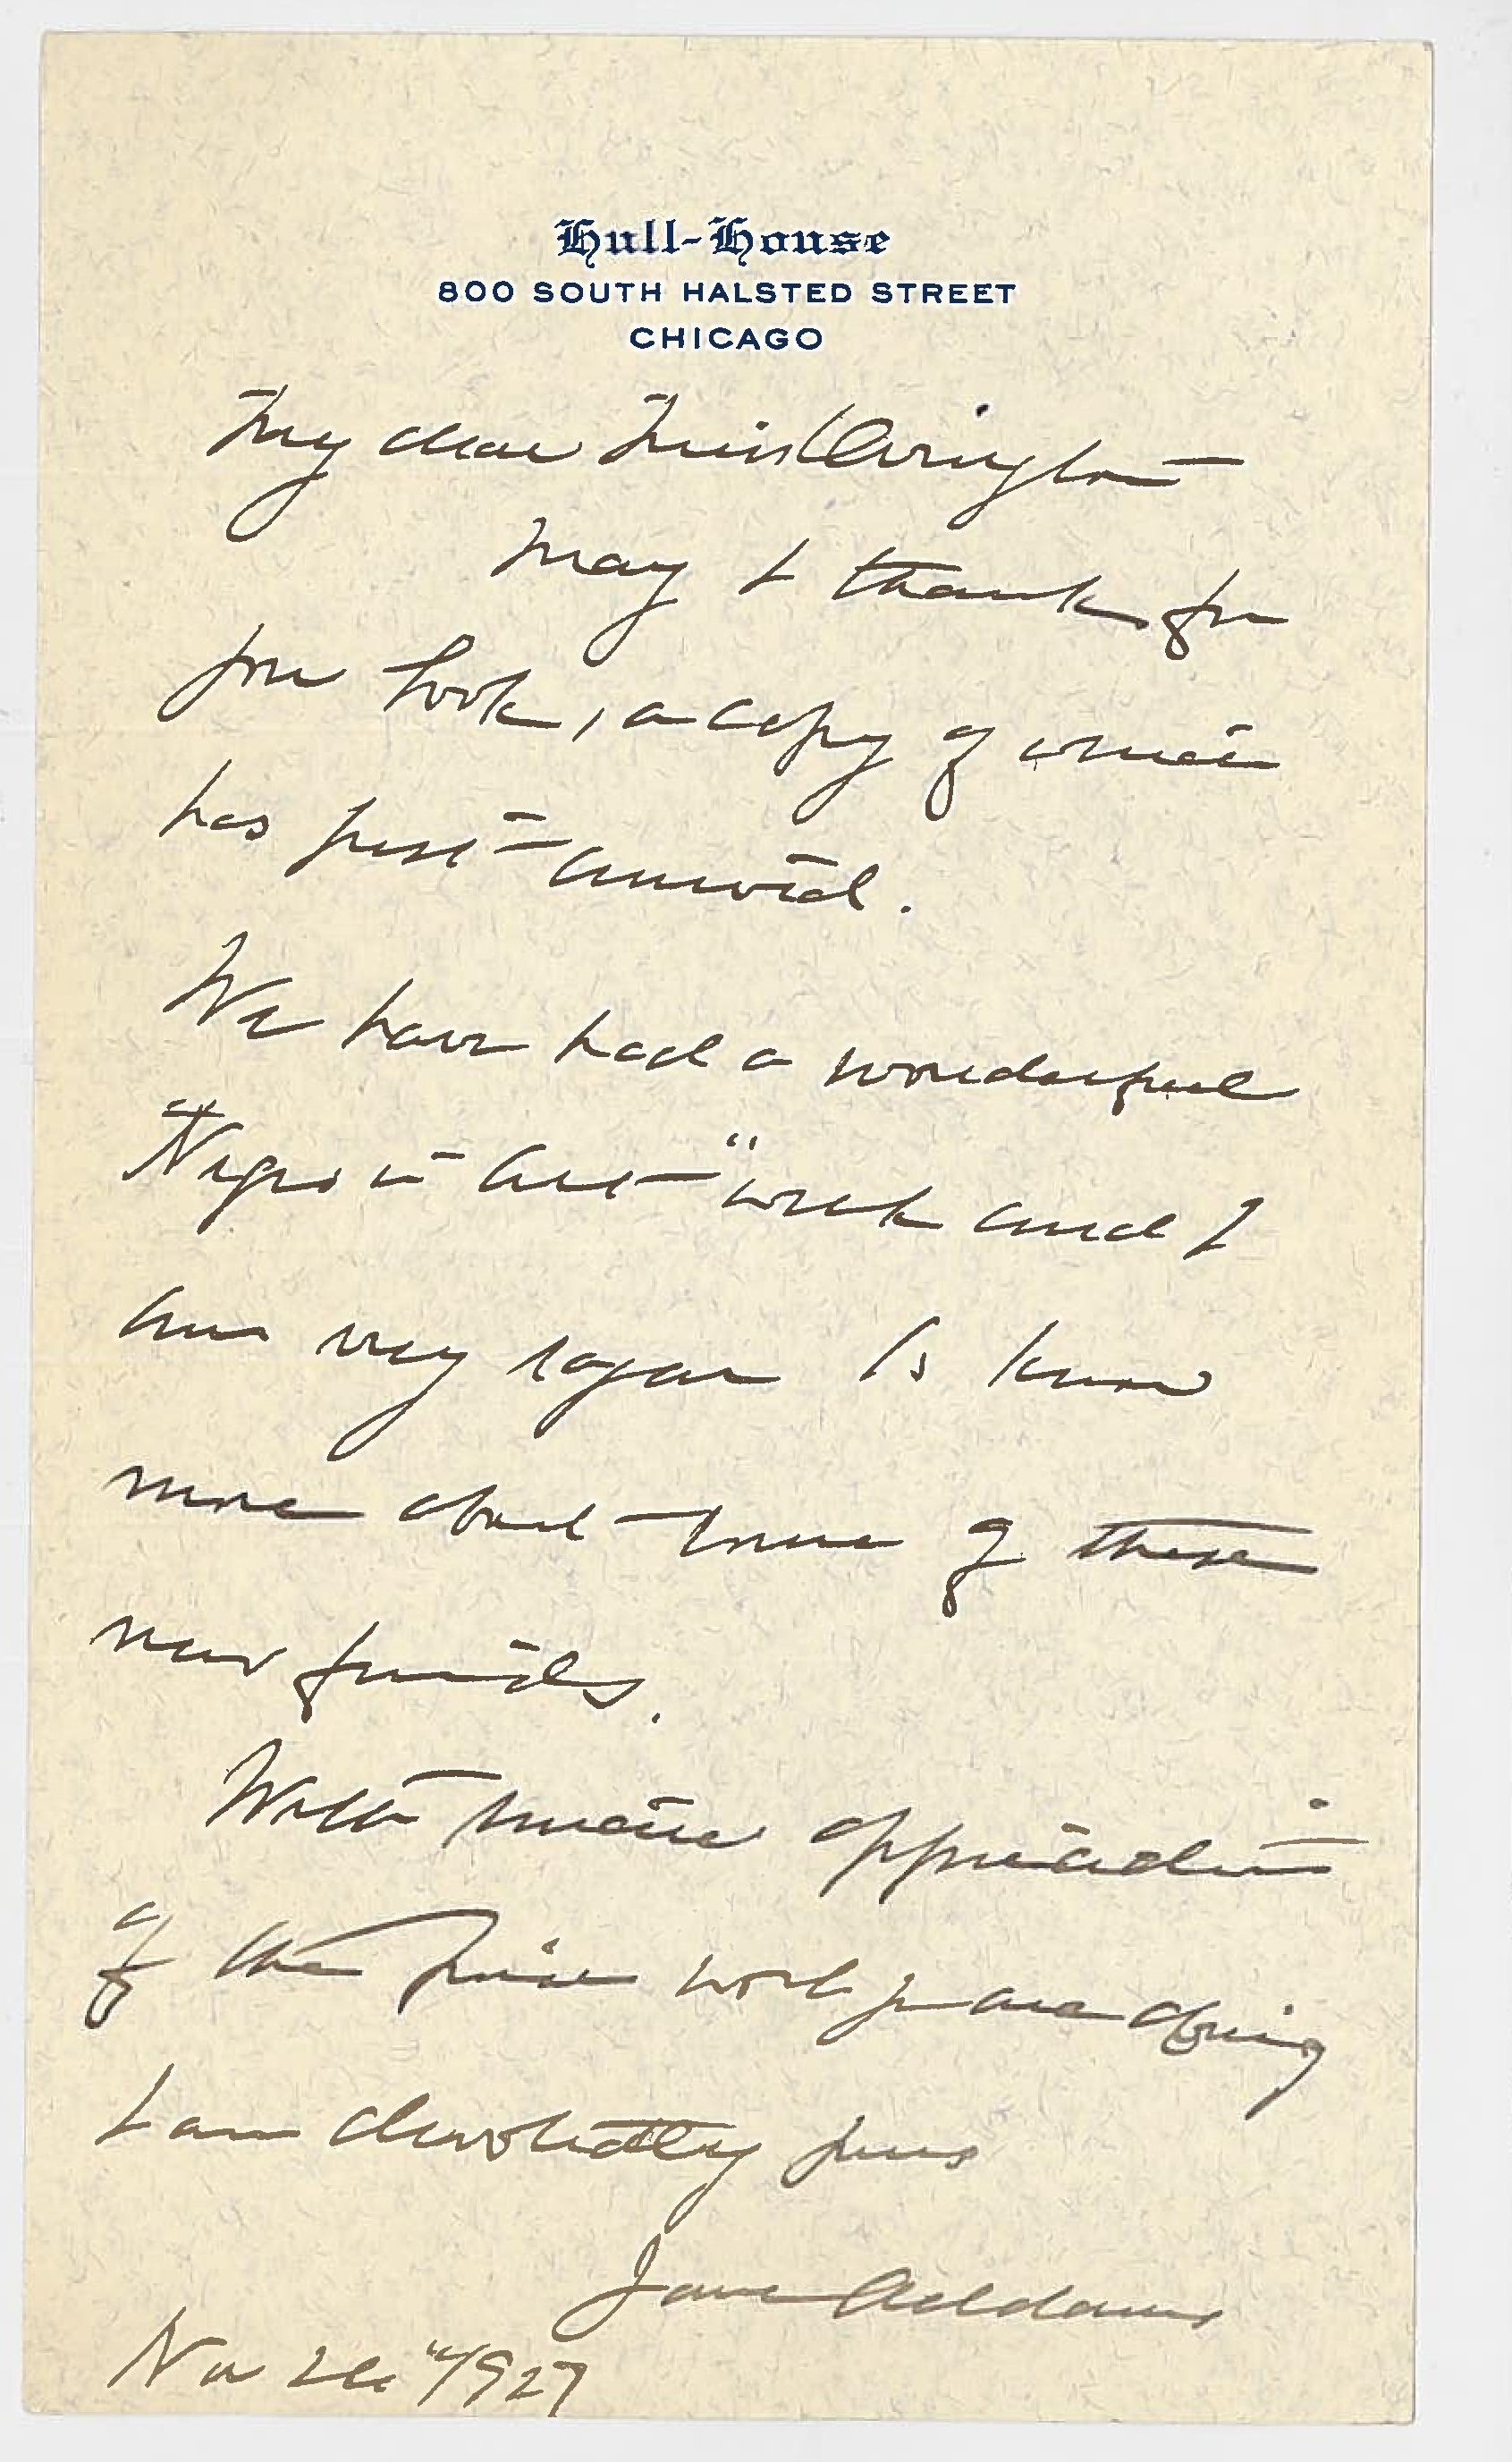 Hull-House
800 SOUTH HALSTED STREET
CHICAGO
My dear Miss Ovington
May I thank for
your book, a copy of which
has just arrived.
We have had a wonderful
"Negro in Art" week and I
am very eager to know
more about some of these
new friends.
With sincere appreciation
of the fine work you are doing
I am devotedly yours
Jane Addams
Nov 1927